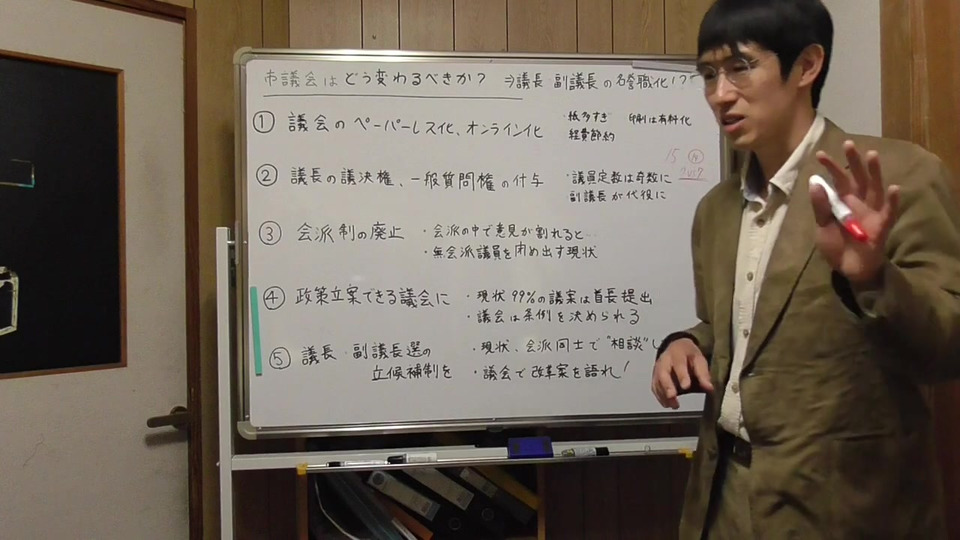 市議会はどう変わるべきか? ⇒議長 副議長の名誉職化!?
① 議会のペーパーレス化、オンライン化
・紙多すぎ 印刷は有料化
経費節約
② 議長の議決権、一般質問権の付与
・議員定数は奇数に
副議長が代役に
15
③ 会派制の廃止
・会派の中で意見が割れると…
・無会派議員を閉め出す現状
④ 政策立案できる議会に
・現状99%の議案は首長提出
・議会は条例を決められる
⑤ 議長 副議長選の
立候補制を
・現状、会派同士で"相談"し
・議会で改革案を語れ!